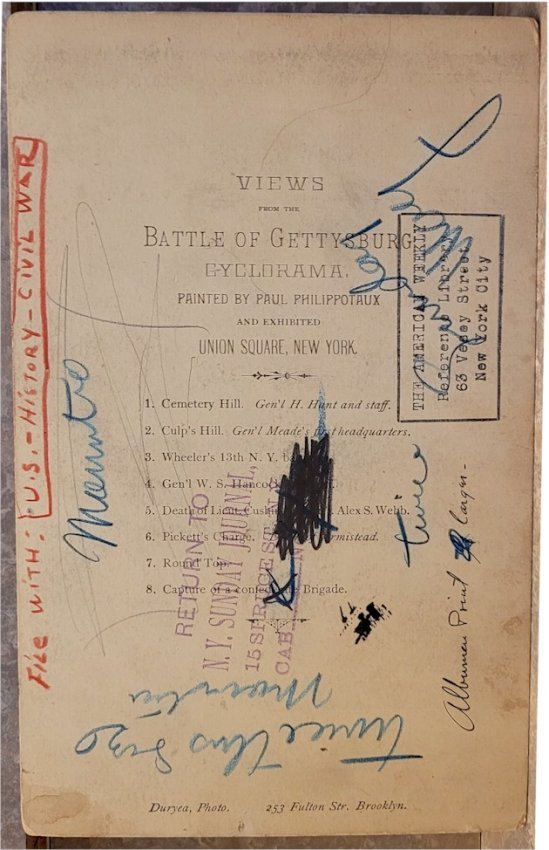 VIEWS
FROM THE
BATTLE OF GETTYSBURG
CYCLORAMA,
PAINTED BY PAUL PHILIPPOTAUX
AND EXHIBITED
UNION SQUARE, NEW YORK.
1. Cemetery Hill. Gen'l H. Hunt and staff.
2. Culp's Hill. Gen'l Meade's first headquarters.
3. Wheeler's 13th N. Y.
4. Gen'l W. S. Hancock
5. Death of Lieut. Alex S. Webb.
6. Pickett's Charge. Armistead.
7. Round Top.
8. Capture of a confederate Brigade.
Duryea, Photo. 253 Fulton Str. Brooklyn.
FILE WITH: U.S. - HISTORY - CIVIL WAR
THE AMERICAN WEEKLY
Reference Library
63 Vesey Street
New York City
RETURN TO
N. Y. SUNDAY JOURNAL,
15 SPRUCE ST.
twice
Albumen Print Larger -
twice this size